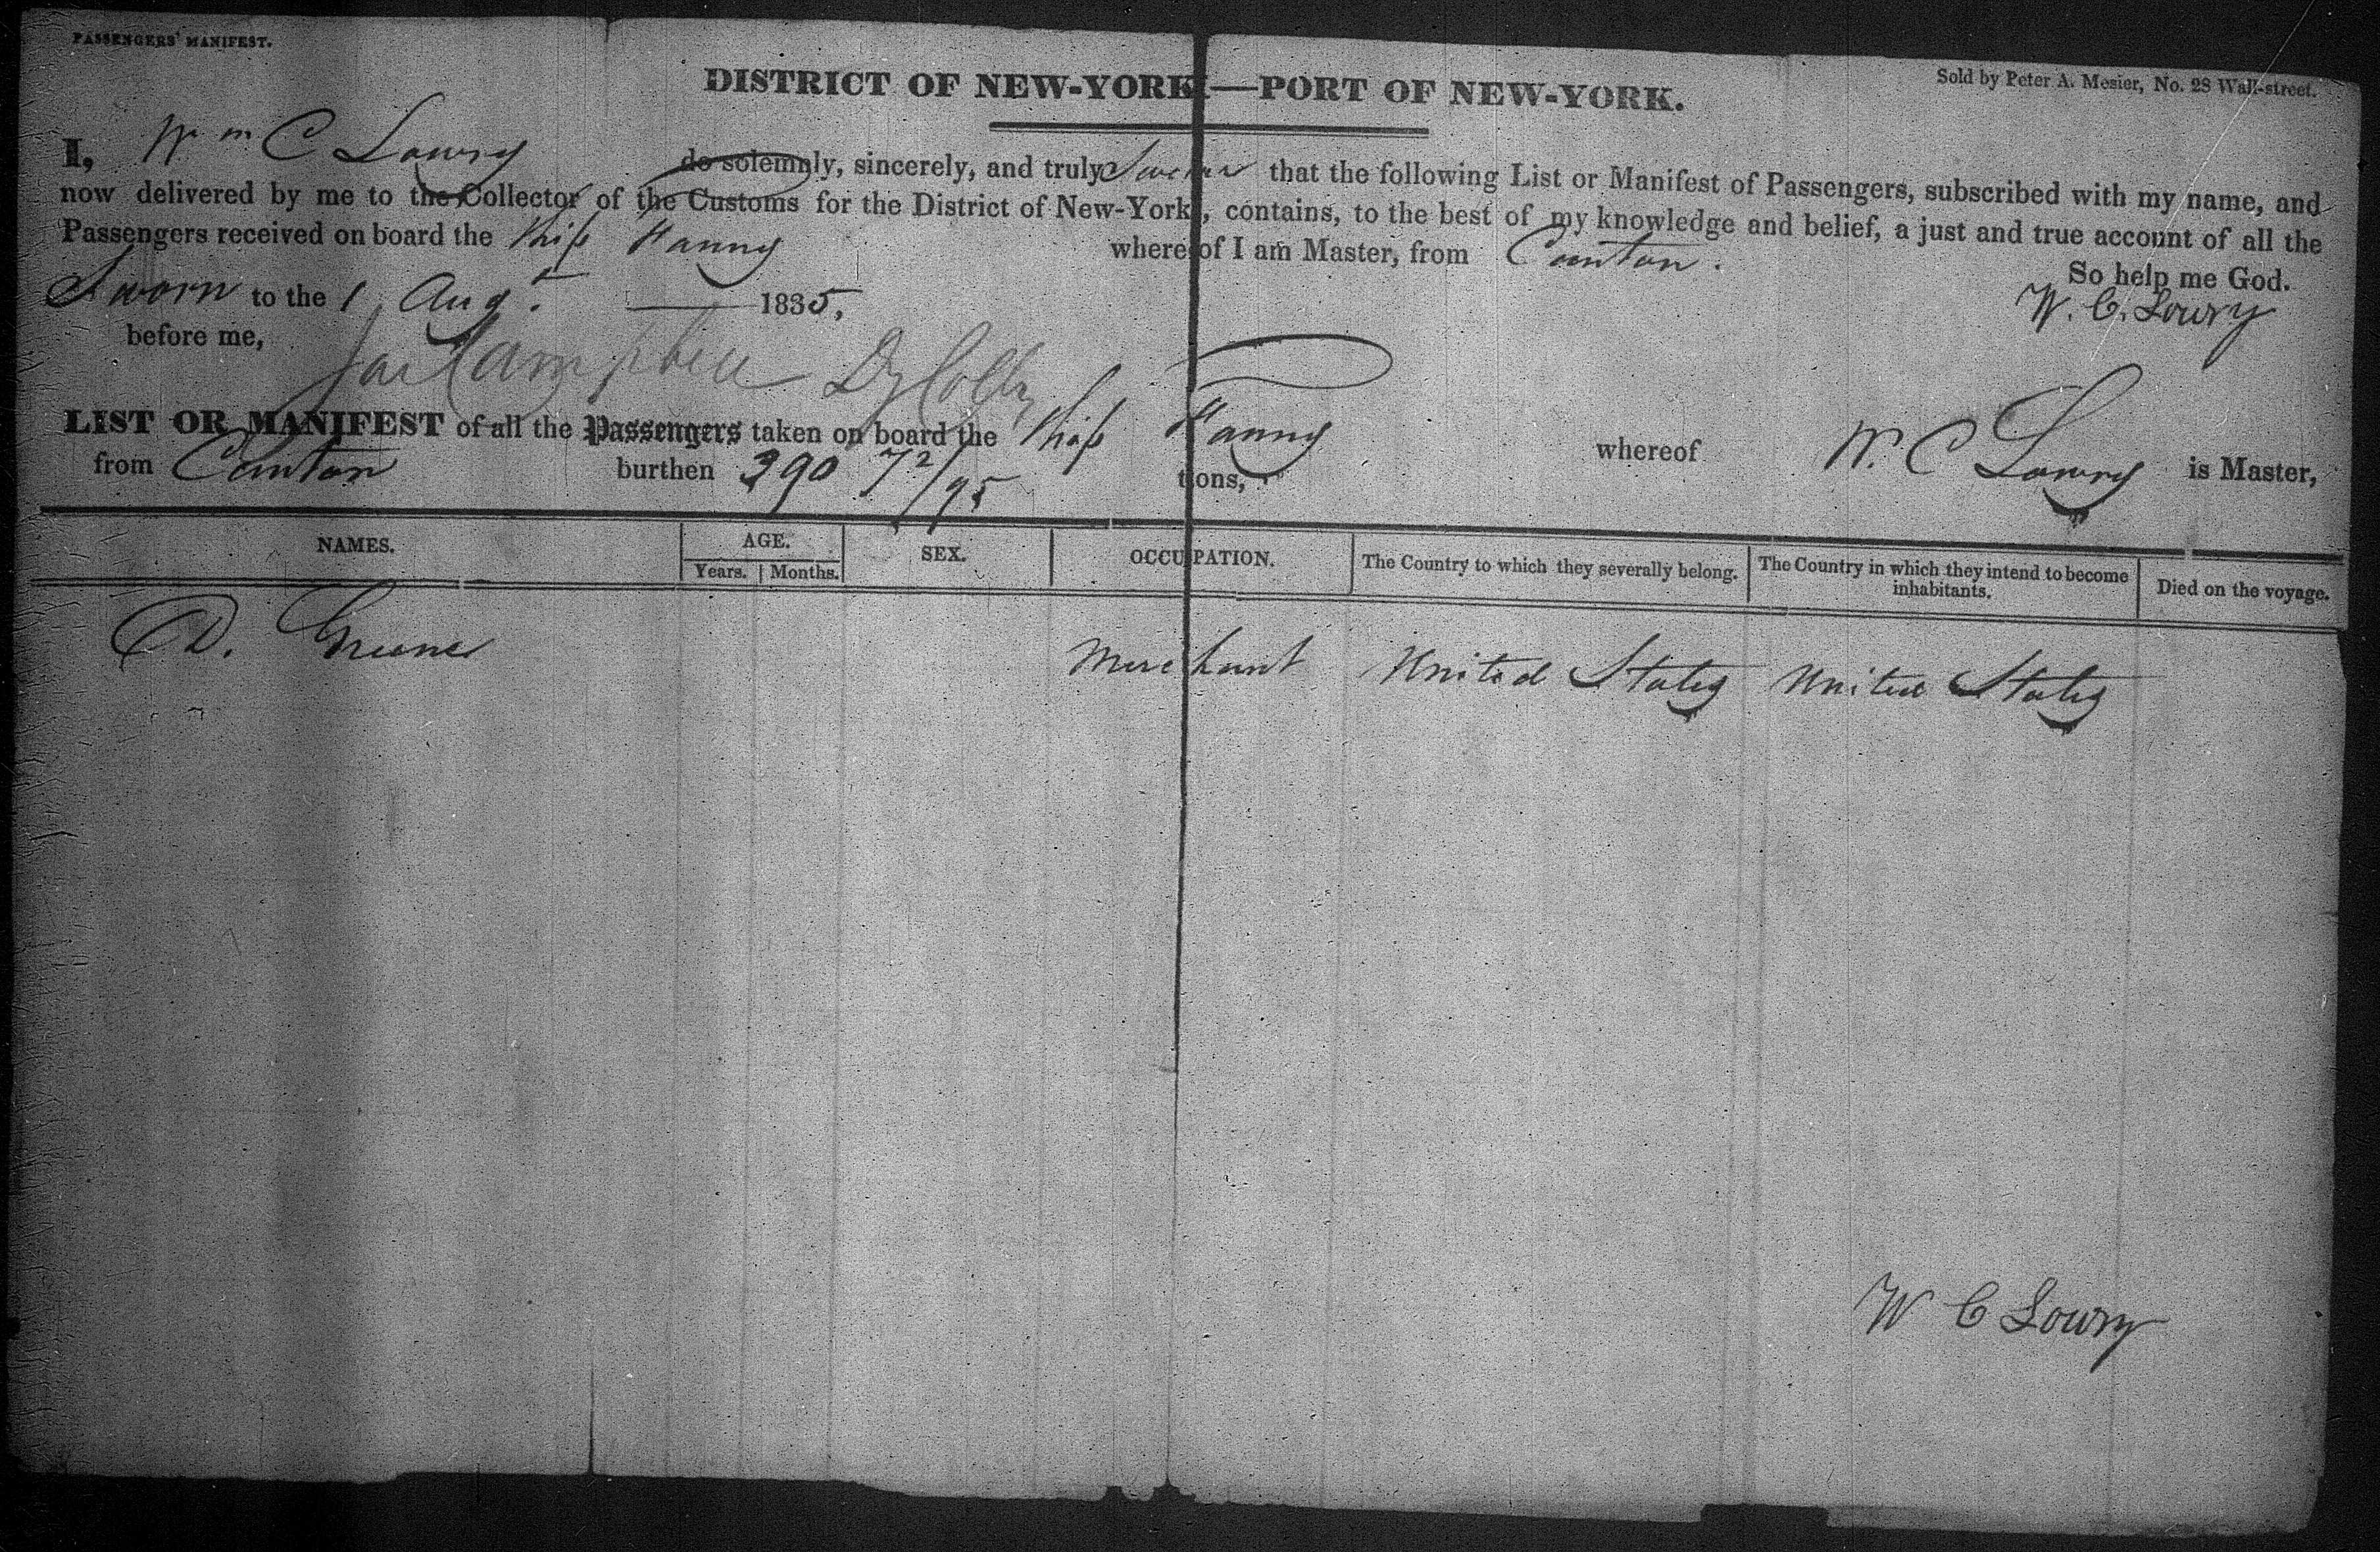 PASSENGERS' MANIFEST.
Sold by Peter A. Mesier, No. 28 Wall-street.
DISTRICT OF NEW-YORK—PORT OF NEW-YORK.
I, Wm C Lowry do solemnly, sincerely, and truly Swear that the following List or Manifest of Passengers, subscribed with my name, and
now delivered by me to the Collector of the Customs for the District of New-York, contains, to the best of my knowledge and belief, a just and true account of all the
Passengers received on board the Ship Hanny whereof I am Master, from Canton.
So help me God.
Sworn to the 1 Augt 1835,
W. C. Lowry
before me,
Jas Campbell Dy Collr
LIST OR MANIFEST of all the Passengers taken on board the Ship Hanny whereof W. C Lowry is Master,
from Canton burthen 390 72/95 tons,
NAMES. AGE. SEX. OCCUPATION. The Country to which they severally belong. The Country in which they intend to become inhabitants. Died on the voyage.
Years. Months.
D. Greene Merchant United States United States
W C Lowry